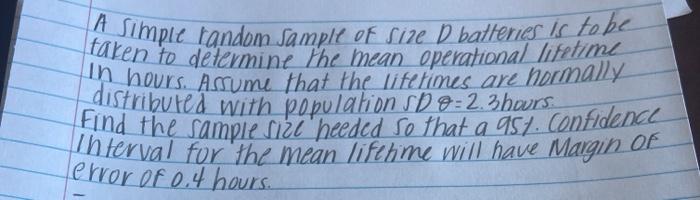 A simple random sample of size D batteries is to be
taken to determine the mean operational lifetime
in hours. Assume that the lifetimes are normally
distributed with population SD σ=2.3hours.
Find the sample size needed so that a 95%. Confidence
interval for the mean lifetime will have Margin of
error of 0.4 hours.